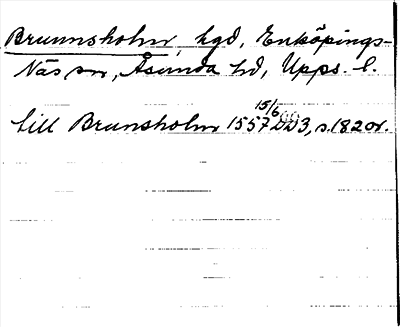 Brunnsholm, hgd, Enköpings-
Näs sn, Åsunda hd, Upps. l.
till Brunsholm 1557 15/6 DD3, s. 182 v.